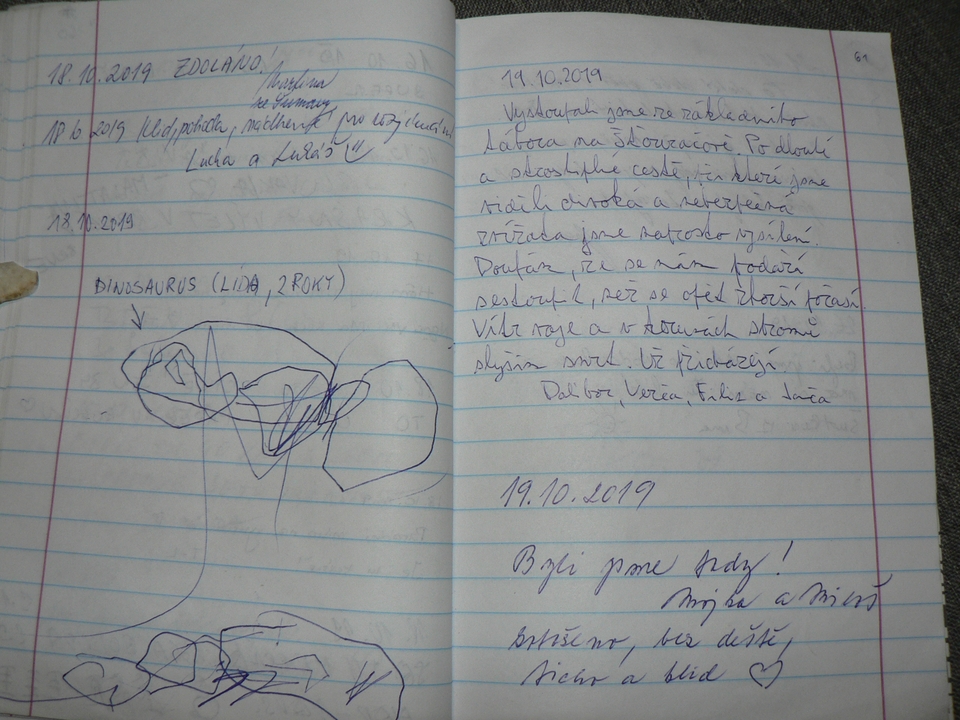 18.10.2019 ZDOLÁNO!
Martina
ze Šumavy
18.10.2019 Klid, pohoda, nádhera pro
Lucka a Lukáš
18.10.2019
DINOSAURUS (LÍDA, 2 ROKY)
61
19.10.2019
Vystoupali jsme ze základního
tábora na Šťouračově. Po dlouhé
a strastiplné cestě, při které jsme
viděli divoká a nebezpečná
zvířata jsme naprosto vysíleni.
Doufám, že se nám podaří
sestoupit, než se opět zhorší počasí.
Vítr vyje a v korunách stromů
slyším smrt. Už přicházejí
Dalibor, Verča, Filip a
19.10.2019
Byli jsme tady!
a Miloš
bez deště,
ticho a klid ♡